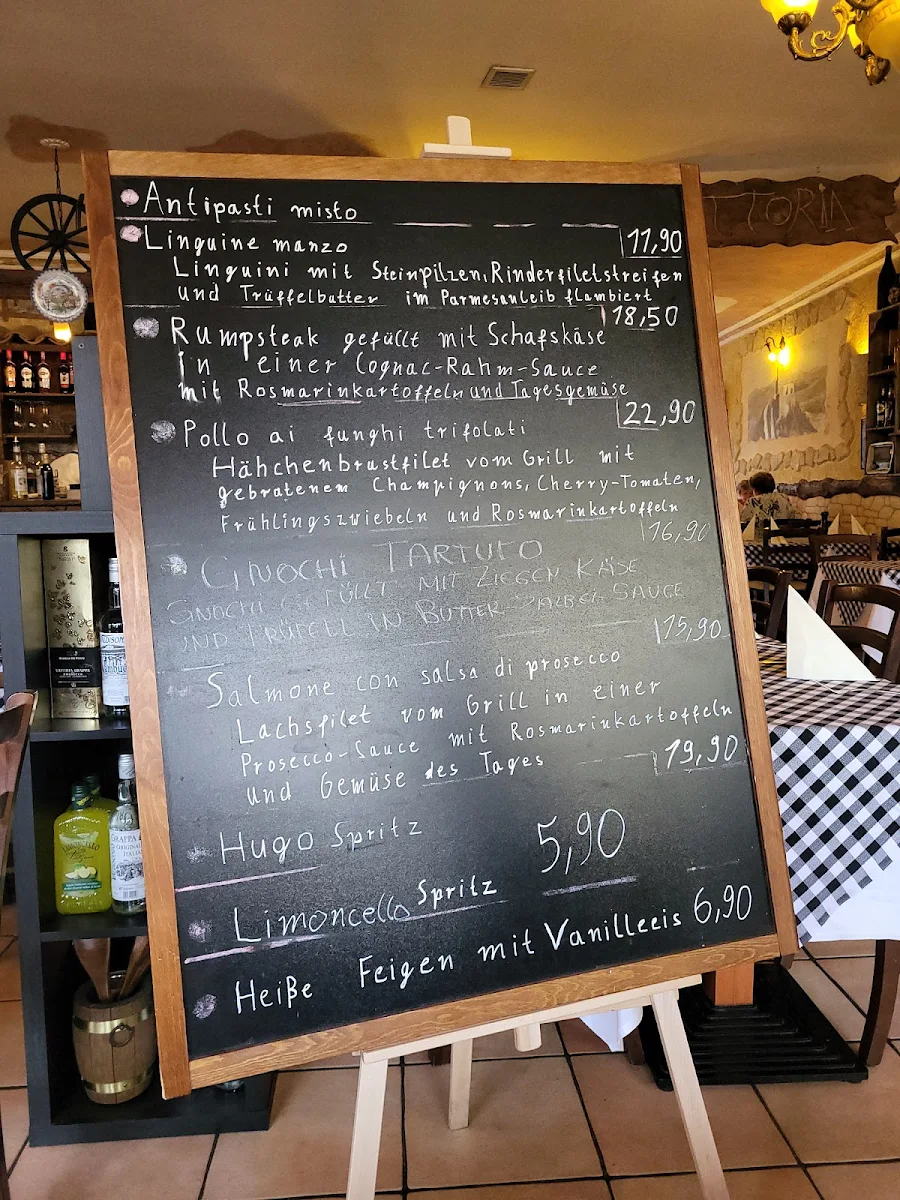 TTORIA
Antipasti misto
11,90
Linguine manzo
Linguini mit Steinpilzen, Rinderfiletstreifen
und Trüffelbutter im Parmesanleib flambiert
18,50
Rumpsteak gefüllt mit Schafskäse
in einer Cognac-Rahm-Sauce
mit Rosmarinkartoffeln und Tagesgemüse
22,90
Pollo ai funghi trifolati
Hähchenbrustfilet vom Grill mit
gebratenem Champignons, Cherry-Tomaten,
Frühlingszwiebeln und Rosmarinkartoffeln
16,90
GNOCHI TARTUFO
GNOCHI GEFÜLLT MIT ZIEGEN KÄSE
UND TRÜFELL IN BUTTER SALBEI SAUCE
15,90
Salmone con salsa di prosecco
Lachsfilet vom Grill in einer
Prosecco-Sauce mit Rosmarinkartoffeln
und Gemüse des Tages
19,90
Hugo Spritz
5,90
Limoncello Spritz
Heiße Feigen mit Vanilleeis 6,90
GRAPPA
ORIGINALE
ITALIA